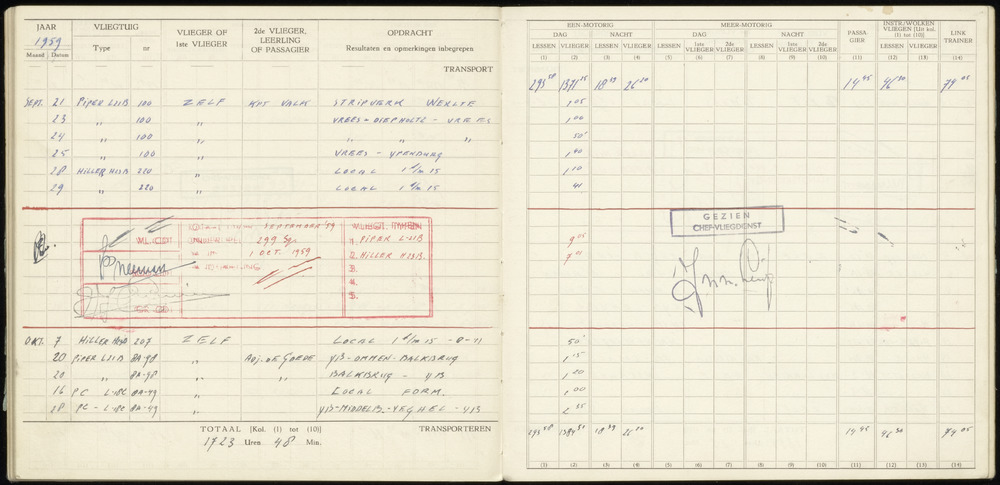 JAAR VLIEGTUIG VLIEGER OF 1ste VLIEGER 2de VLIEGER, LEERLING OF PASSAGIER OPDRACHT
1959 Resultaten en opmerkingen inbegrepen
Maand Datum Type nr
TRANSPORT
SEPT. 21 PIPER L21B 100 ZELF VALK STRIPVERK WERLTE
23 " 100 " VREES - DIEPHOLTZ - VREES
24 " 100 " " " "
25 " 100 " VREES - YPENBURG
28 HILLER H23B 220 " LOCAL 1 t/m 15
29 " 220 " LOCAL 1 t/m 15
SEPTEMBER '59
299 Sq.
1 OCT. 1959
1. PIPER L-21B
2. HILLER H23B.
3.
4.
5.
OKT. 7 HILLER H23B 207 ZELF LOCAL 1 t/m 15 - 0 - 11
20 PIPER L21B 8A-98 " Adj. de Goede YIB-OMMEN-BALKBRUG
20 " 8A-98 " " BALKBRUG - YIB
16 PC L-18C 8A-49 " LOCAL FORM.
28 PC - L-18C 8A-49 " YIB-MIDDELB.-VEGHEL-YIB
TOTAAL [Kol. (1) tot (10)] TRANSPORTEREN
1723 Uren 48 Min.
EEN-MOTORIG MEER-MOTORIG PASSAGIER INSTR./WOLKEN VLIEGEN [Uit kol. (1) tot (10)] LINK TRAINER
DAG NACHT DAG NACHT
LESSEN VLIEGER LESSEN VLIEGER LESSEN 1ste VLIEGER 2de VLIEGER LESSEN 1ste VLIEGER 2de VLIEGER LESSEN VLIEGER
(1) (2) (3) (4) (5) (6) (7) (8) (9) (10) (11) (12) (13) (14)
293 58 1371 25 18 59 26 20 14 45 46 30 74 05
1 05
1 00
50
1 40
1 10
41
GEZIEN
CHEF-VLIEGDIENST
9 05
7 01
50
1 15
1 20
1 00
2 55
293 58 1384 51 18 59 26 20 14 45 46 30 74 05
(1) (2) (3) (4) (5) (6) (7) (8) (9) (10) (11) (12) (13) (14)